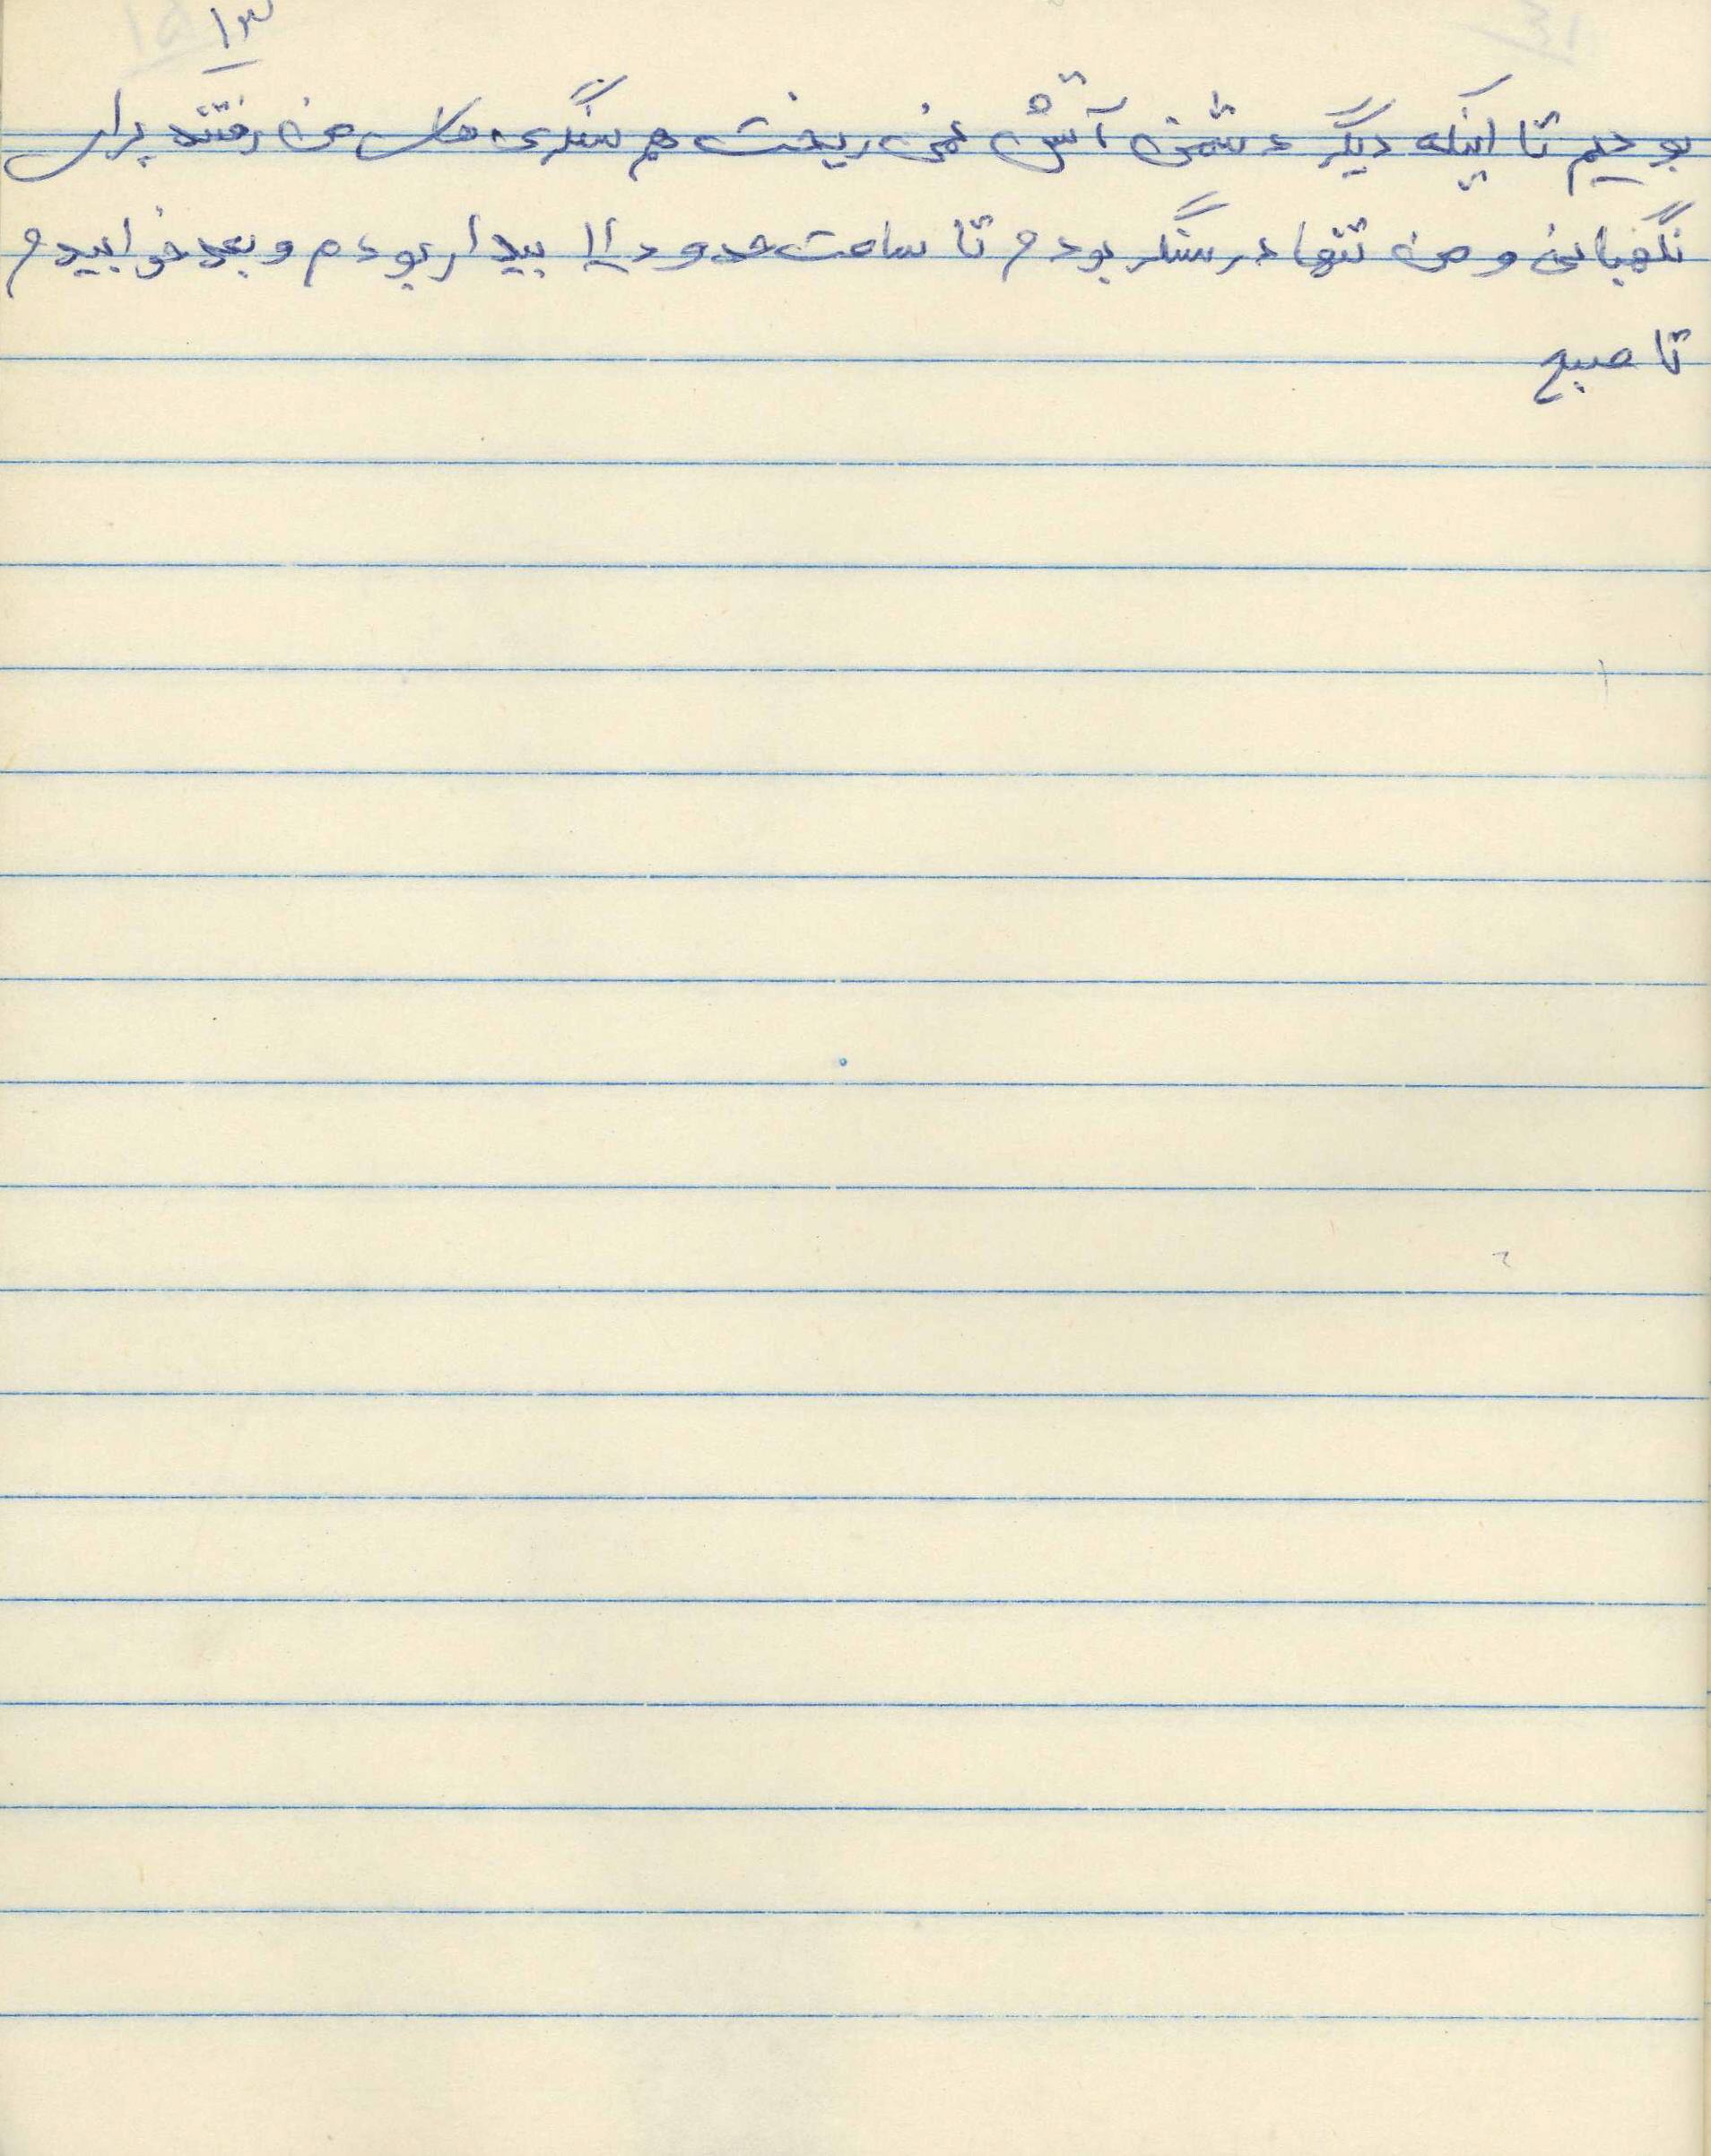 ۱۳
بودیم تا اینکه دیگر دشمن آتش نمی ریخت هم سنگری های من رفتند برای
نگهبانی و من تنها در سنگر بودم تا ساعت حدود ۱۱ بیدار بودم و بعد خوابیدم
تا صبح